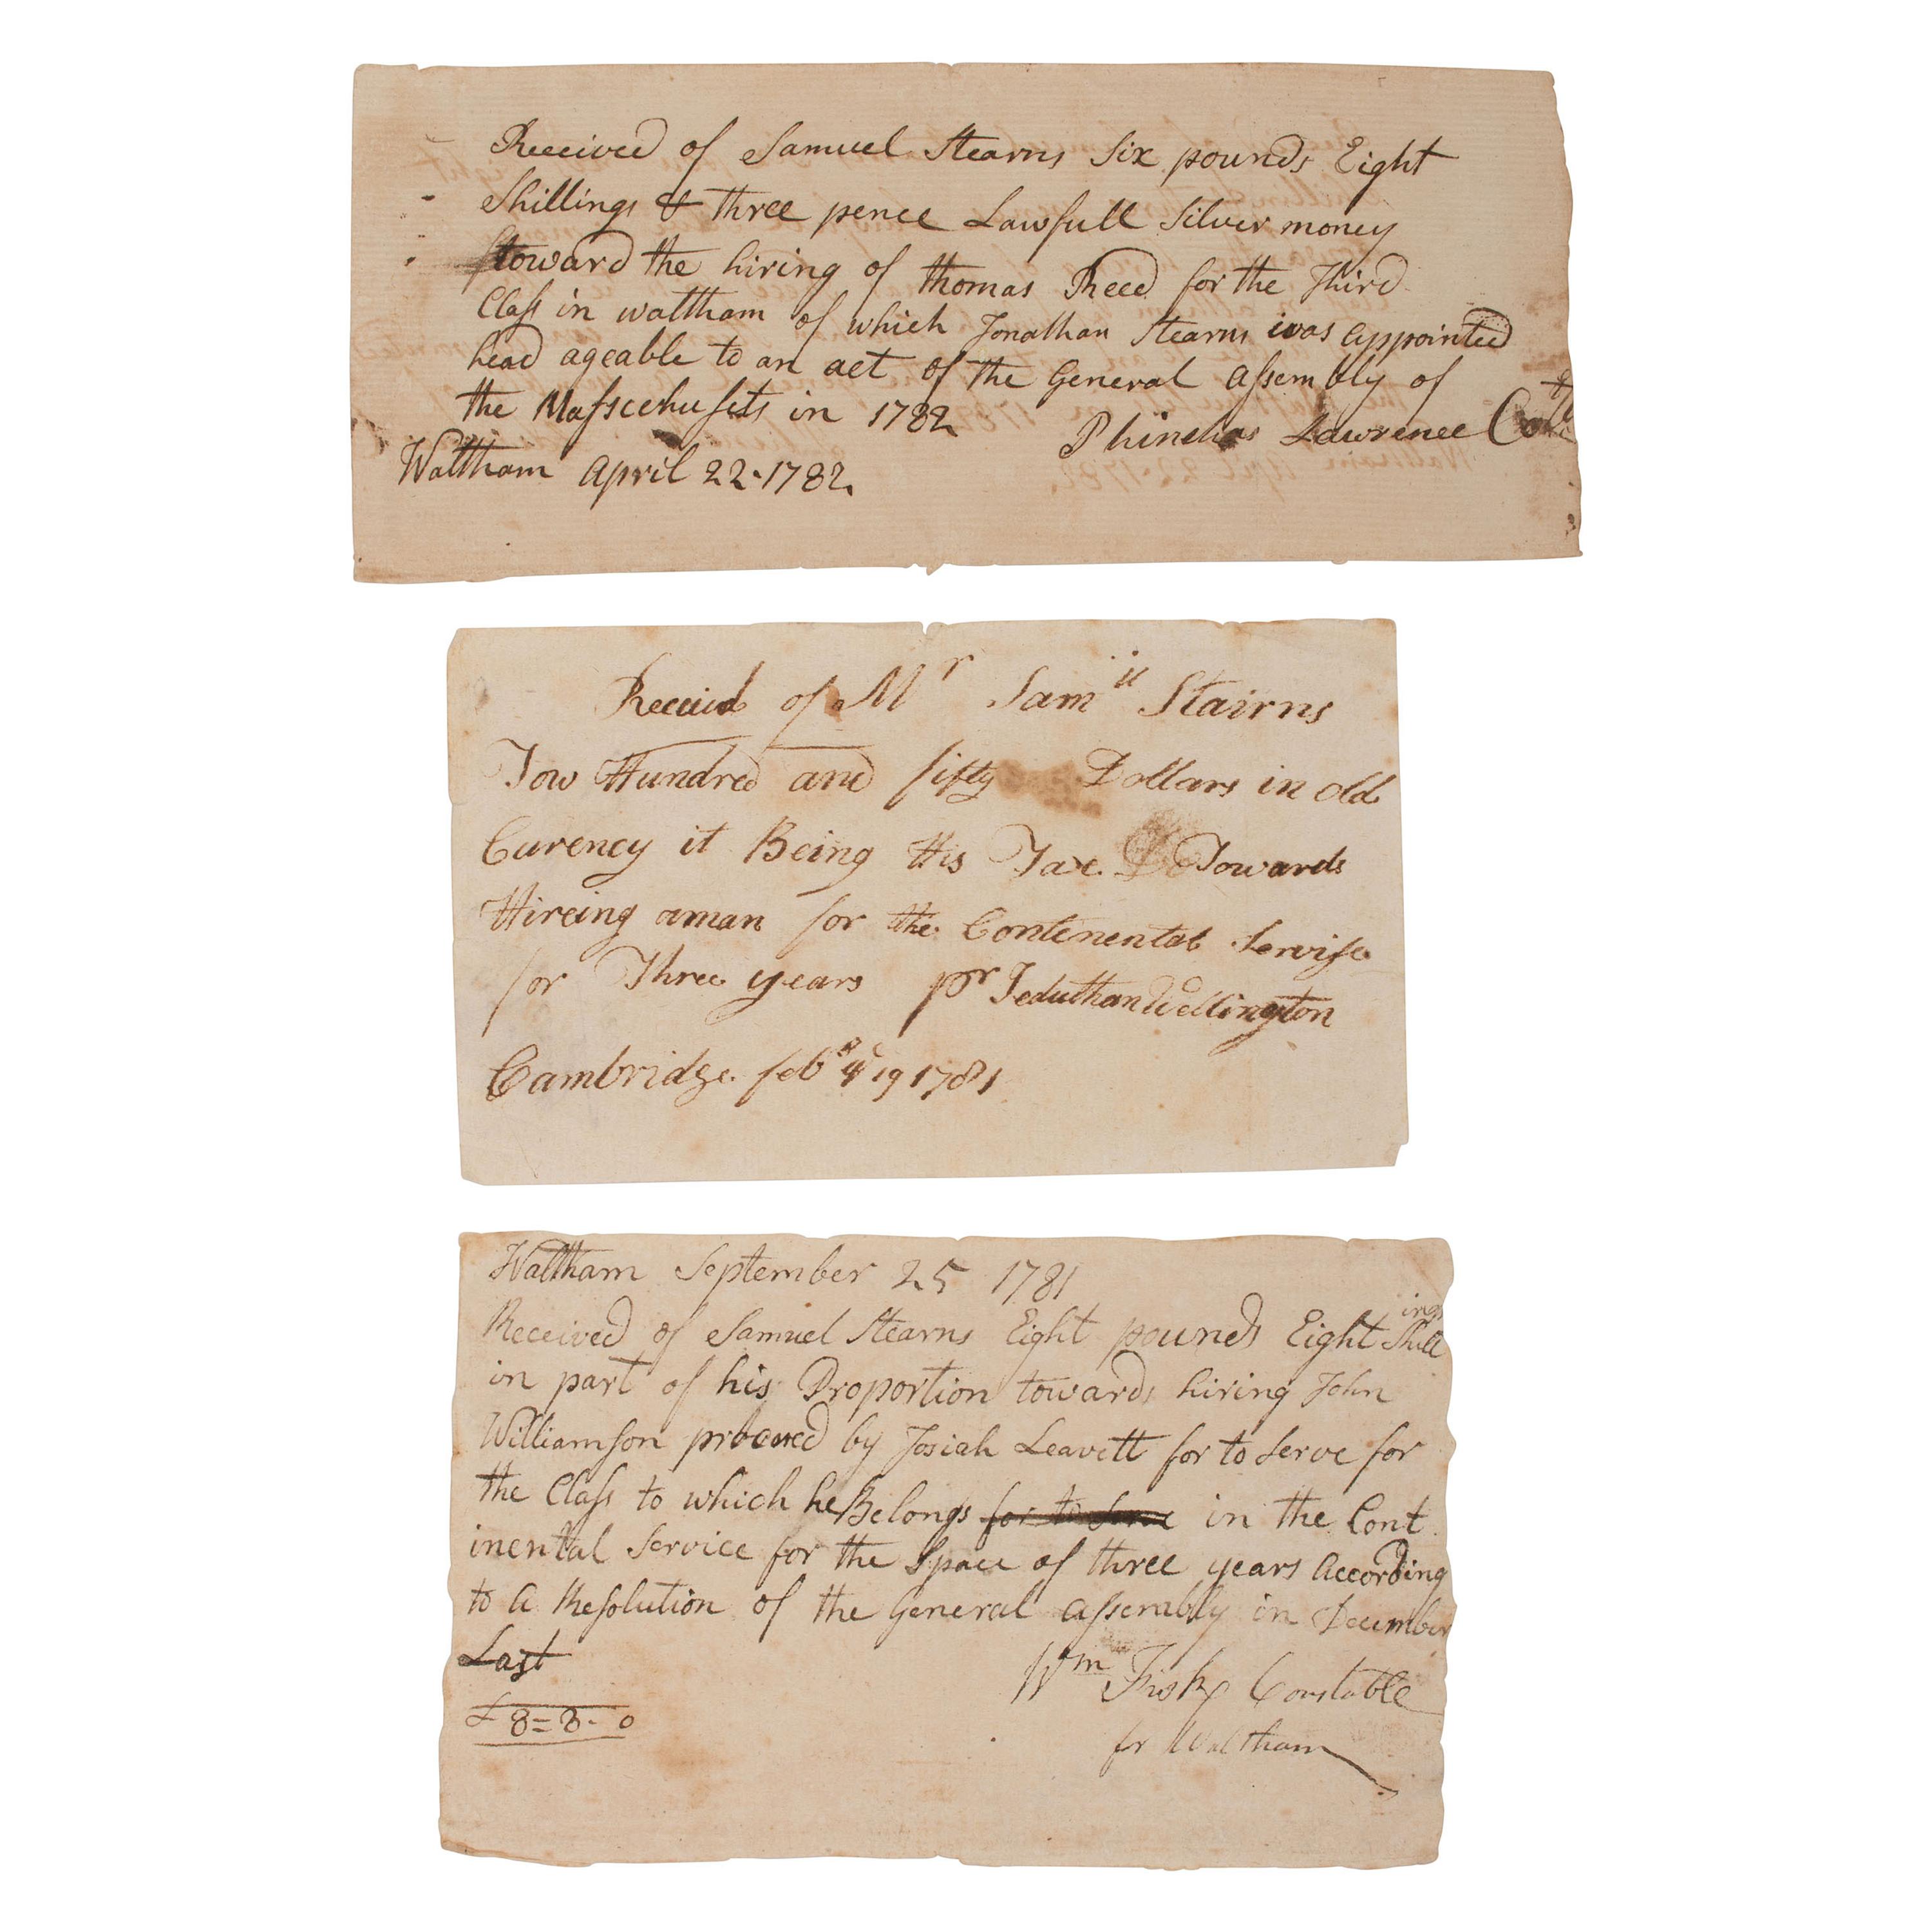 Received of Samuel Stearns Six pounds Eight
Shillings & three pence Lawfull Silver money
toward the hiring of thomas Reed for the Third
Class in waltham of which Jonathan Stearns was appointed
head ageable to an act of the General assembly of
the Masscehusets in 1782
Phinehas Lawrence
Waltham April 22 · 1782
Receivd of Mr Samll Stairns
Tow Hundred and fifty Dollars in old
Curency it Being His Tax Towards
Hireing aman for the Contenental Servise
for Three years pr Jeduthan Wellington
Cambridge feb 19 1781
Waltham September 25 1781
Received of Samuel Stearns Eight pounds Eight Shillings
in part of his Proportion towards hiring John
Williamson procured by Josiah Leavitt for to Serve for
the Class to which he Belongs for to Serve in the Cont
inental Service for the Space of three years According
to a Resolution of the General assembly in December
Last
Wm Fisk Constable
£ 8=8-0
for Waltham